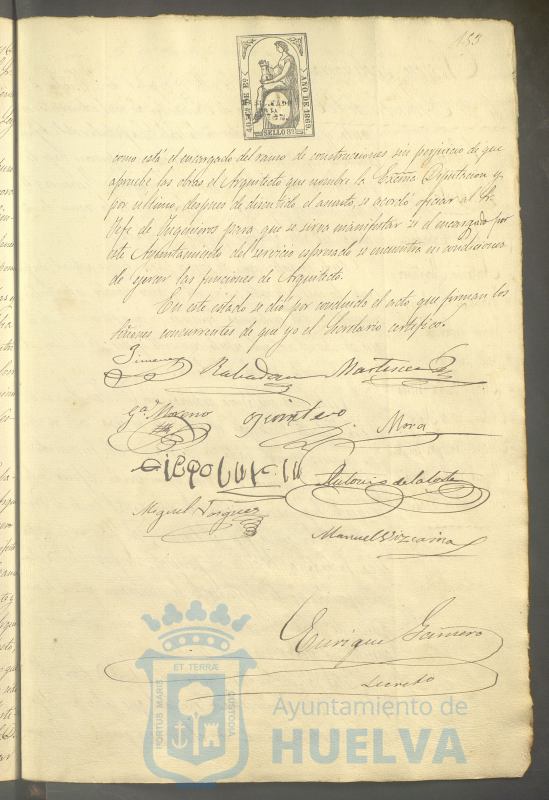 153
40 Ms. DE Eº.
AÑO DE 1869
SELLO 9º
como está el encargado del ramo de construcciones sin perjuicio de que
apruebe las obras el Arquitecto que nombre la Excma Diputacion y
por ultimo, despues de discutido el asunto, se acordó oficiar al Sr.
Jefe de Ingenieros para que se sirva manifestar si el encargado por
este Ayuntamiento del servicio espresado se encuentra en condiciones
de ejercer las funciones de Arquitecto.
En este estado se dió por concluido el acto, que firman los
Señores concurrentes de que yo el Secretario certifico.
Jimenez
Rabadan
Martinez
Ga. Moreno
Quintero
Mora
Antonio de la Corte
Miguel
Manuel Vizcaino
Enrique Gamero
Secreto
PORTUS MARIS
ET TERRÆ
CUSTODIA
Ayuntamiento de
HUELVA